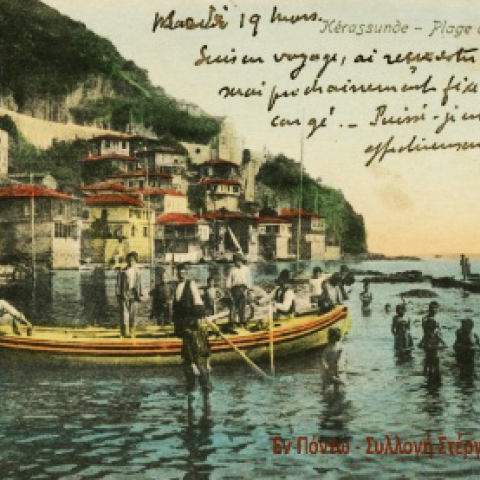 19 mars.
Kérassunde - Plage
Suis en voyage, ai
serai prochainement
congé. - Puissé-je
effectivement
Εν Πόντω - Συλλογή Στέργ